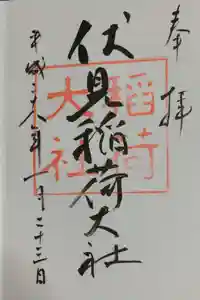 奉拝
伏見稲荷大社
稲荷大社
平成二十九年一月二十三日